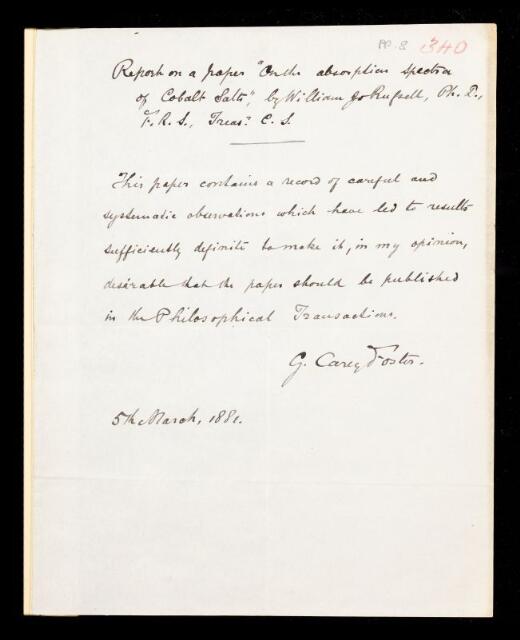 PP. 8 340
Report on a paper "On the absorption spectra
of Cobalt Salts", by William Jo Russell, Ph. D.,
F. R. S., Treas.r C. S.
This paper contains a record of careful and
systematic observations which have led to results
sufficiently definite to make it, in my opinion,
desirable that the paper should be published
in the Philosophical Transactions.
G. Carey Foster.
5th March, 1881.